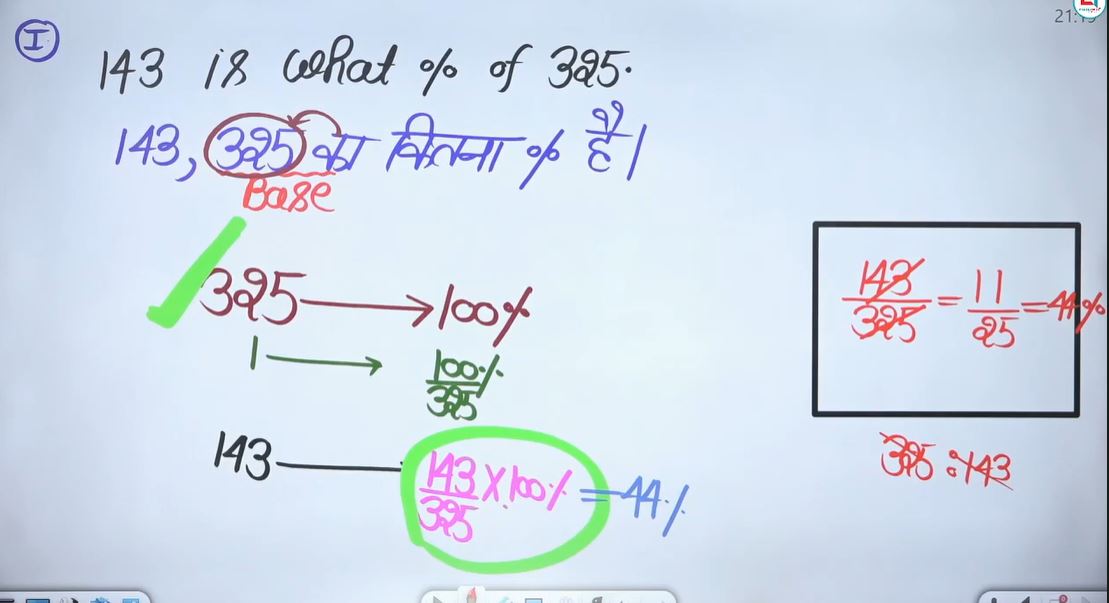 I
143 is what % of 325.
143, 325 का कितना % है।
Base
325 → 100%
1 → 100%/325
143 — 143/325 × 100% = 44%
143/325 = 11/25 = 44%
325 : 143